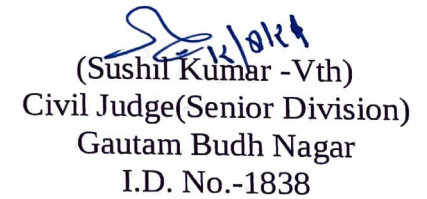 (Sushil Kumar -Vth)
Civil Judge(Senior Division)
Gautam Budh Nagar
I.D. No.-1838